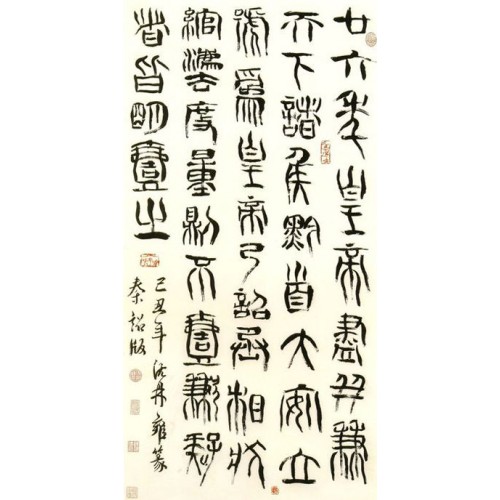 廿六年皇帝盡并兼
天下諸侯黔首大安立
號為皇帝乃詔丞相狀
綰灋度量則不壹歉疑
者皆明壹之
己丑年丹雍篆
秦詔版